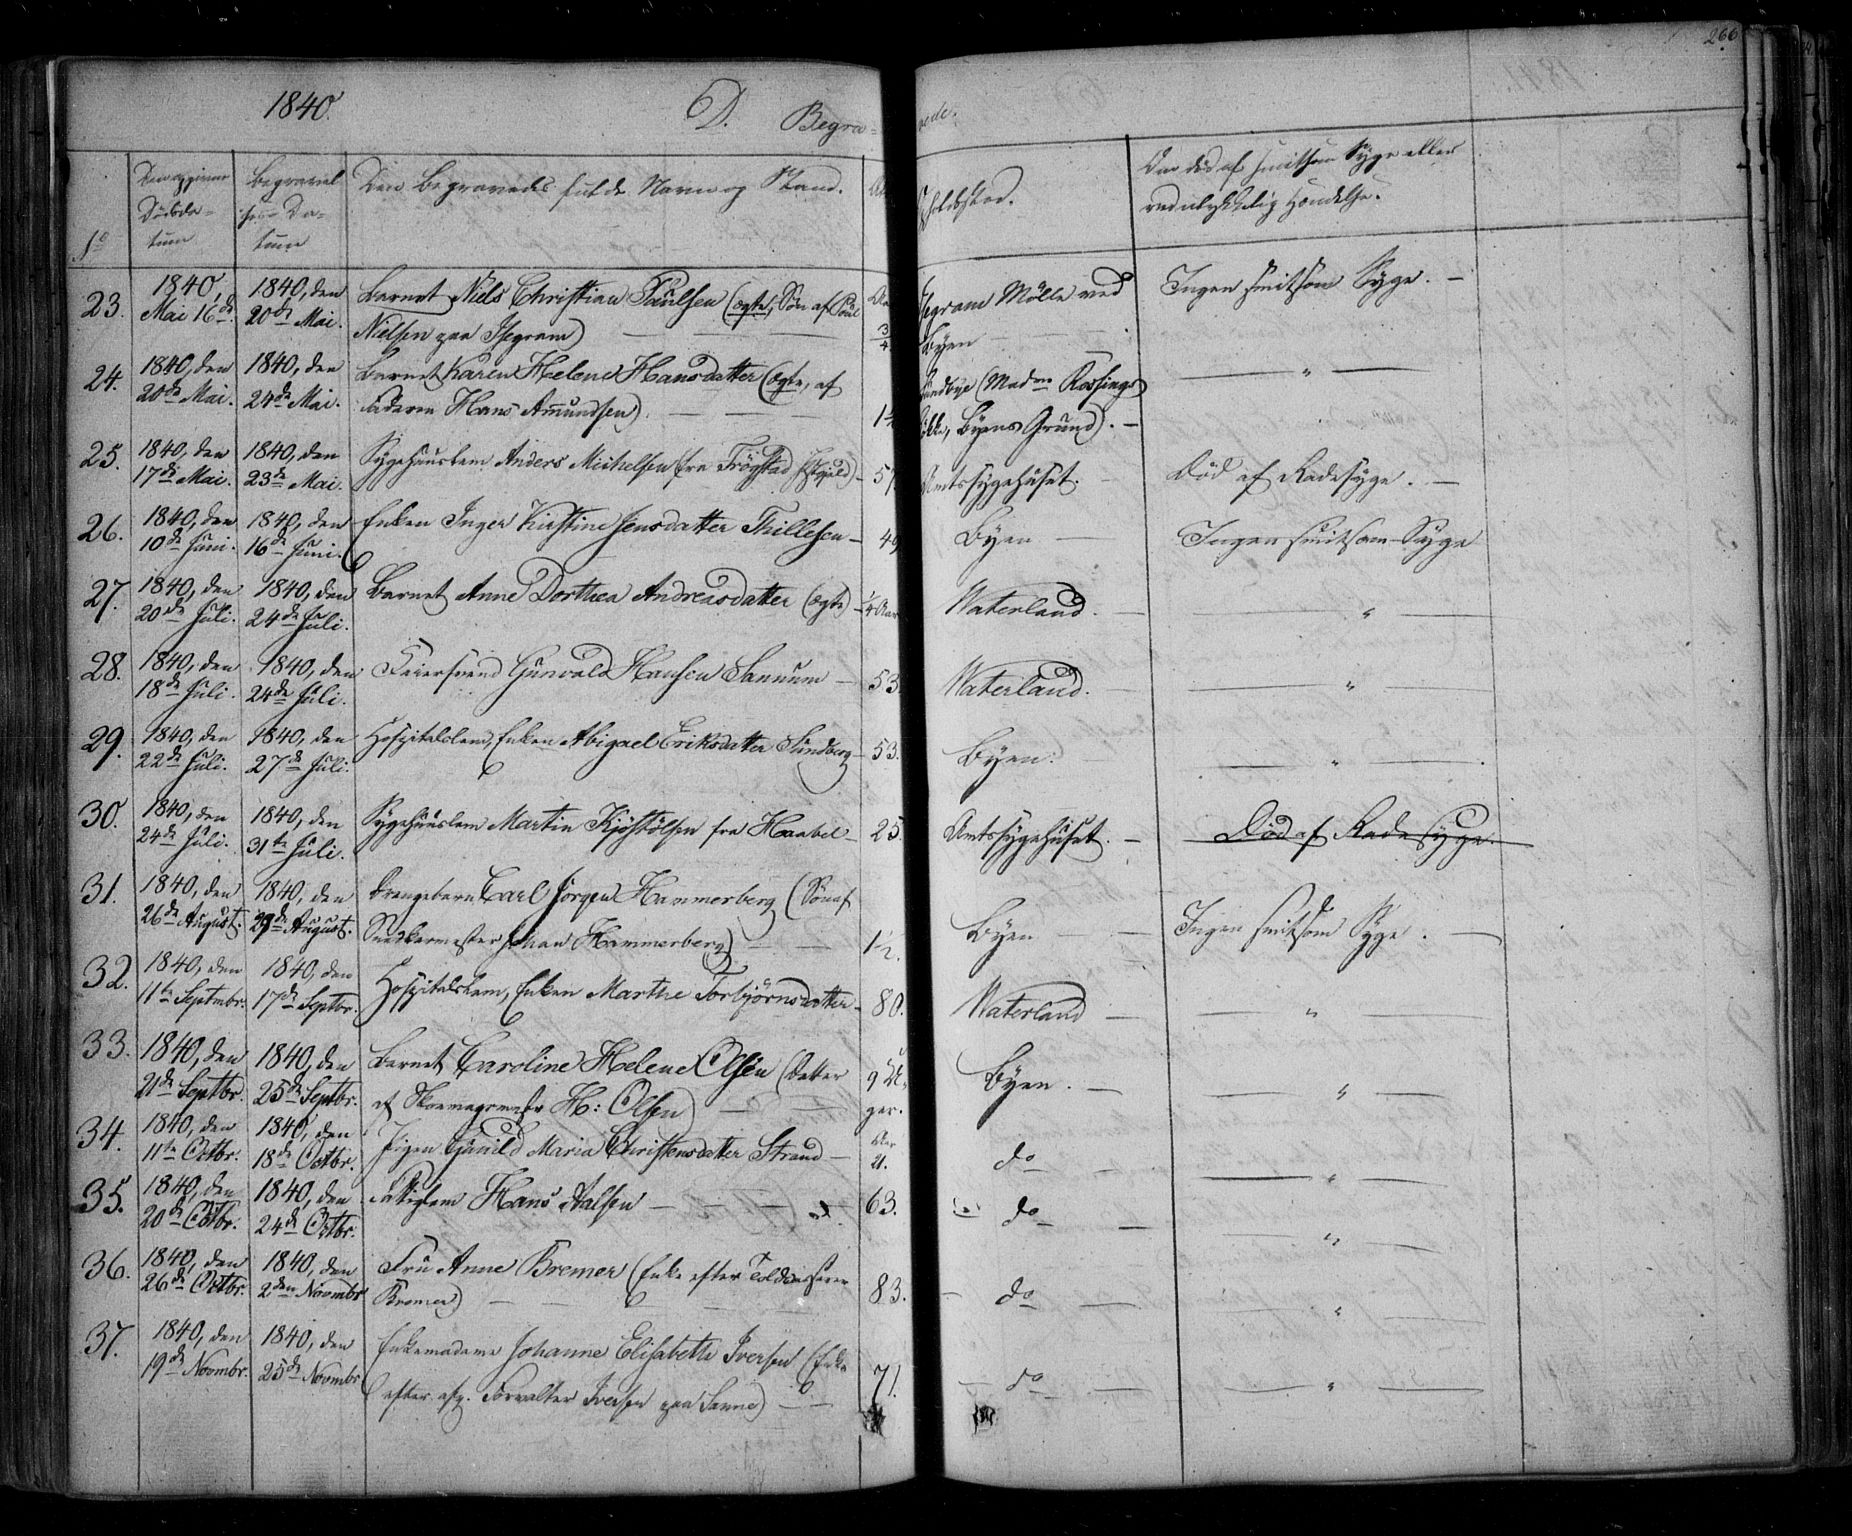 266
1840.
D. Begra=
vede.
Den begravedes fulde Navn og Stand.
Opholdssted.
Om død af smitsom Syge eller
ved ulykkelig Hændelse.
23. 1840, Mai 16de. 1840, den 20de Mai. Barnet Niels Christian Paulsen (ægte, Søn af Paul
Nielsen paa Isegram) 3/4 Isegram Mölle ved
Byen — Ingen smitsom Syge. —
24. 1840, den 20de Mai. 1840, den 24de Mai. Barnet Karen Helene Hansdatter (ægte, af
Faderen Hans Amundsen). — (Madme Rossings
Løkke, Byens Grund). — — " —
25. 1840, den 17de Mai. 1840, den 23de Mai. Sygehuuslem Anders Michelsen fra Trögstad — 57 Amtssygehuset. Död af Radesyge. —
26. 1840, den 10de Juni. 1840, den 16de Juni. Enken Inger Kirstine Jensdatter Thillesen — 49 Byen — Ingen smitsom Syge
27. 1840, den 20de Juli. 1840, den 24de Juli. Barnet Anne Dorthea Andreasdatter (ægte) — 1/4 Aar Waterland. — "
28. 1840, den 18de Juli. 1840, den 24de Juli. Feiersvend Gunvald Hansen Sannum — 53. Waterland. — — " —
29. 1840, den 22de Juli. 1840, den 27de Juli. Hospitalslem, Enken Abigael Eriksdatter Sundberg — 53. Byen. — " —
30. 1840, den 24de Juli. 1840, den 31te Juli. Sygehuuslem Martin Kjöstölsen fra Haabel — 25. Amtssygehuset. — Död af Radesyge.
31. 1840, den 26de August. 1840, den 29de August. Drengebarn Carl Jorgen Hammerberg (Søn af
Snedkermester Johan Hammerberg) — 1½. Byen — Ingen smitsom Syge. —
32. 1840, den 11te Septmbr. 1840, den 17de Septbr. Hospitalslem, Enken Marthe Torbjörnsdatter — 80. Waterland — — " —
33. 1840, den 21de Septbr. 1840, den 25de Septbr. Barnet Caroline Helene Olsen (Datter
af Skomagermestr H: Olsen) — 9 Uger. Byen. — — " —
34. 1840, den 11te Octbr. 1840, den 18de Octbr. Pigen Gunild Maria Christensdatter Strand — Aar 21. do — — " —
35. 1840, den 20de Octbr. 1840, den 24de Octbr. Fattiglem Hans Aalsen — 63. do — "
36. 1840, den 26de Octbr. 1840, den 2den Novmbr Fru Anne Bremer (Enke efter Toldcasserer
Bremer) — 83. — do — — " —
37. 1840, den 19de Novmbr. 1840, den 25de Novmbr Enkemadame Johanne Elisabethe Iversen (Enke
efter afg. Forvalter Iversen paa Sanne) — 71. — do — — " —